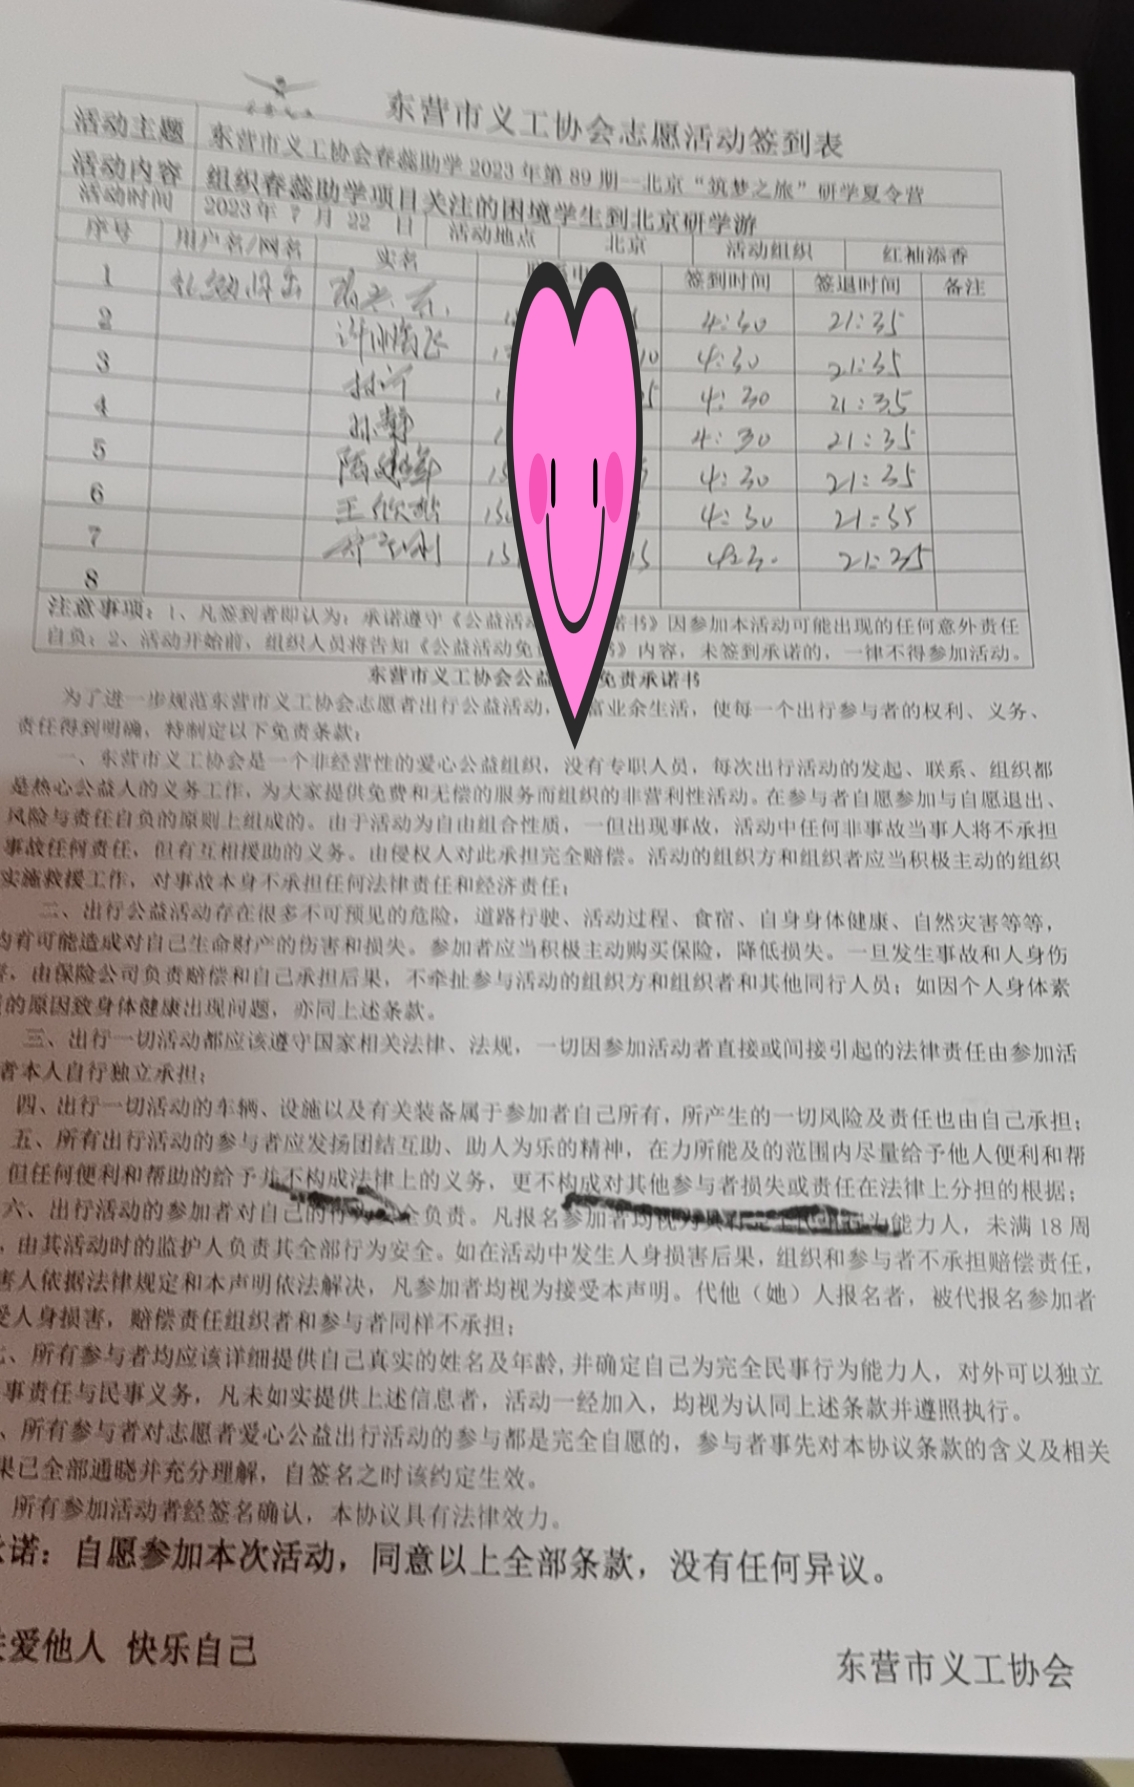 东营市义工协会志愿活动签到表
活动主题 东营市义工协会春蕊助学2023年第89期--北京“筑梦之旅”研学夏令营
活动内容 组织春蕊助学项目关注的困境学生到北京研学游
活动时间 2023年 7 月 22 日 活动地点 北京 活动组织 红袖添香
序号 用户名/网名 实名 签到时间 签退时间 备注
1 4:30 21:35
2 4:30 21:35
3 4:30 21:35
4 4:30 21:35
5 4:30 21:35
6 4:30 21:35
7 21:35
8
注意事项：1、凡签到者即认为：承诺遵守《公益活动 诺书》因参加本活动可能出现的任何意外责任
自负；2、活动开始前，组织人员将告知《公益活动免 书》内容，未签到承诺的，一律不得参加活动。
东营市义工协会公益 免责承诺书
为了进一步规范东营市义工协会志愿者出行公益活动， 富业余生活，使每一个出行参与者的权利、义务、
责任得到明确，特制定以下免责条款：
一、东营市义工协会是一个非经营性的爱心公益组织，没有专职人员，每次出行活动的发起、联系、组织都
是热心公益人的义务工作，为大家提供免费和无偿的服务而组织的非营利性活动。在参与者自愿参加与自愿退出、
风险与责任自负的原则上组成的。由于活动为自由组合性质，一但出现事故，活动中任何非事故当事人将不承担
事故任何责任，但有互相援助的义务。由侵权人对此承担完全赔偿。活动的组织方和组织者应当积极主动的组织
实施救援工作，对事故本身不承担任何法律责任和经济责任；
二、出行公益活动存在很多不可预见的危险，道路行驶、活动过程、食宿、自身身体健康、自然灾害等等，
均有可能造成对自己生命财产的伤害和损失。参加者应当积极主动购买保险，降低损失。一旦发生事故和人身伤
害，由保险公司负责赔偿和自己承担后果，不牵扯参与活动的组织方和组织者和其他同行人员；如因个人身体素
的原因致身体健康出现问题，亦同上述条款。
三、出行一切活动都应该遵守国家相关法律、法规，一切因参加活动者直接或间接引起的法律责任由参加活
者本人自行独立承担；
四、出行一切活动的车辆、设施以及有关装备属于参加者自己所有，所产生的一切风险及责任也由自己承担；
五、所有出行活动的参与者应发扬团结互助、助人为乐的精神，在力所能及的范围内尽量给予他人便利和帮
但任何便利和帮助的给予并不构成法律上的义务，更不构成对其他参与者损失或责任在法律上分担的根据；
六、出行活动的参加者对自己的行为安全负责。凡报名参加者均视为具有完全民事行为能力人，未满18周
，由其活动时的监护人负责其全部行为安全。如在活动中发生人身损害后果，组织和参与者不承担赔偿责任，
害人依据法律规定和本声明依法解决，凡参加者均视为接受本声明。代他（她）人报名者，被代报名参加者
受人身损害，赔偿责任组织者和参与者同样不承担；
七、所有参与者均应该详细提供自己真实的姓名及年龄，并确定自己为完全民事行为能力人，对外可以独立
事责任与民事义务，凡未如实提供上述信息者，活动一经加入，均视为认同上述条款并遵照执行。
、所有参与者对志愿者爱心公益出行活动的参与都是完全自愿的，参与者事先对本协议条款的含义及相关
果已全部通晓并充分理解，自签名之时该约定生效。
所有参加活动者经签名确认，本协议具有法律效力。
承诺：自愿参加本次活动，同意以上全部条款，没有任何异议。
关爱他人 快乐自己
东营市义工协会